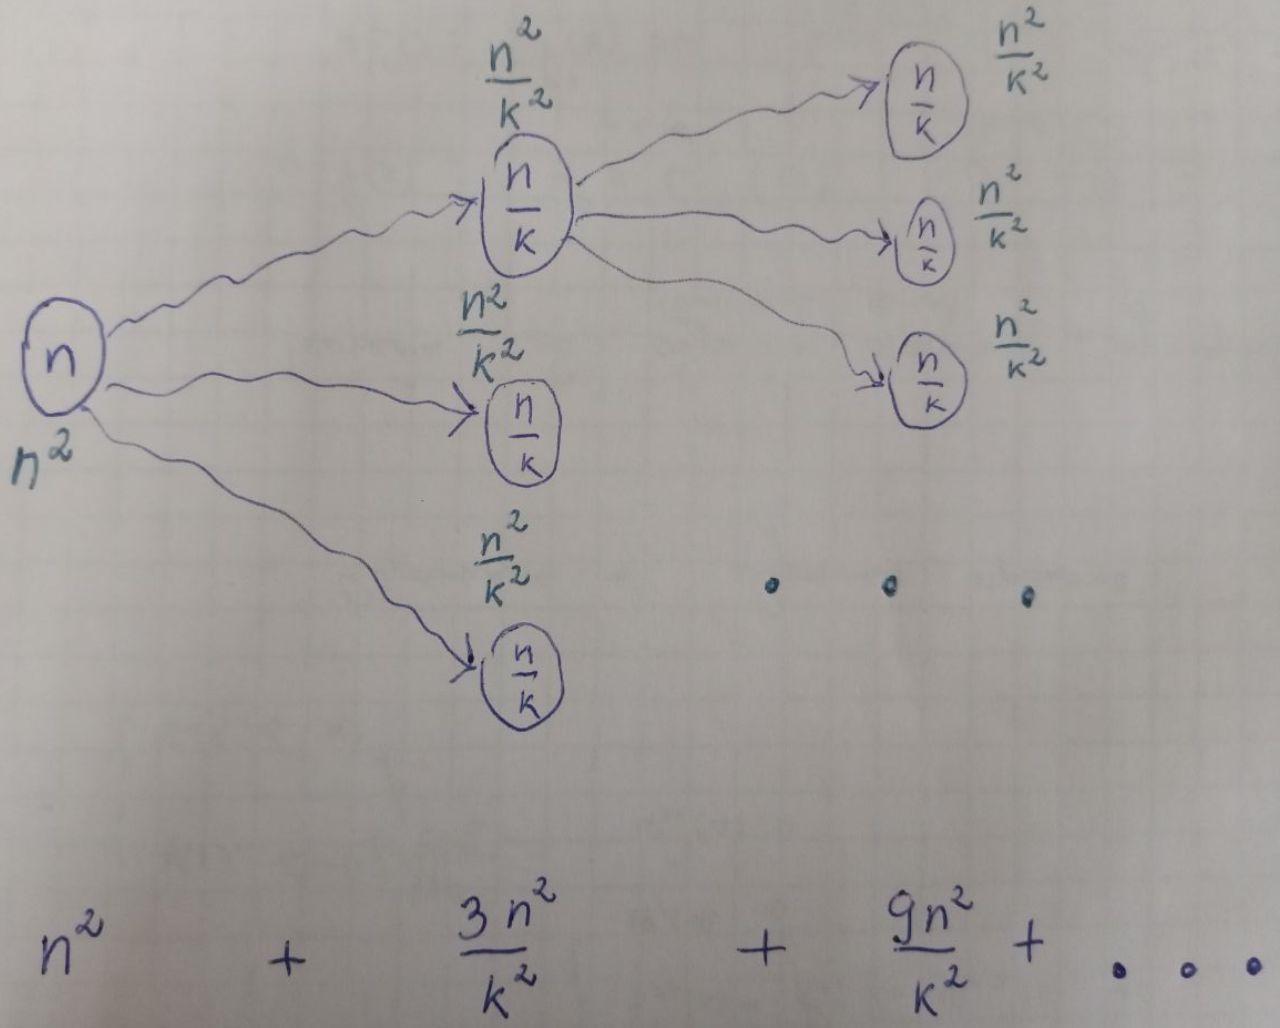 n²/k²
n²/k²
n/k
n/k
n²/k²
n/k
n/k
n²/k²
n
n²/k²
n/k
n²/k²
n/k
n²
n²/k²
n/k
. . .
n² + 3n²/k² + 9n²/k² + . . .